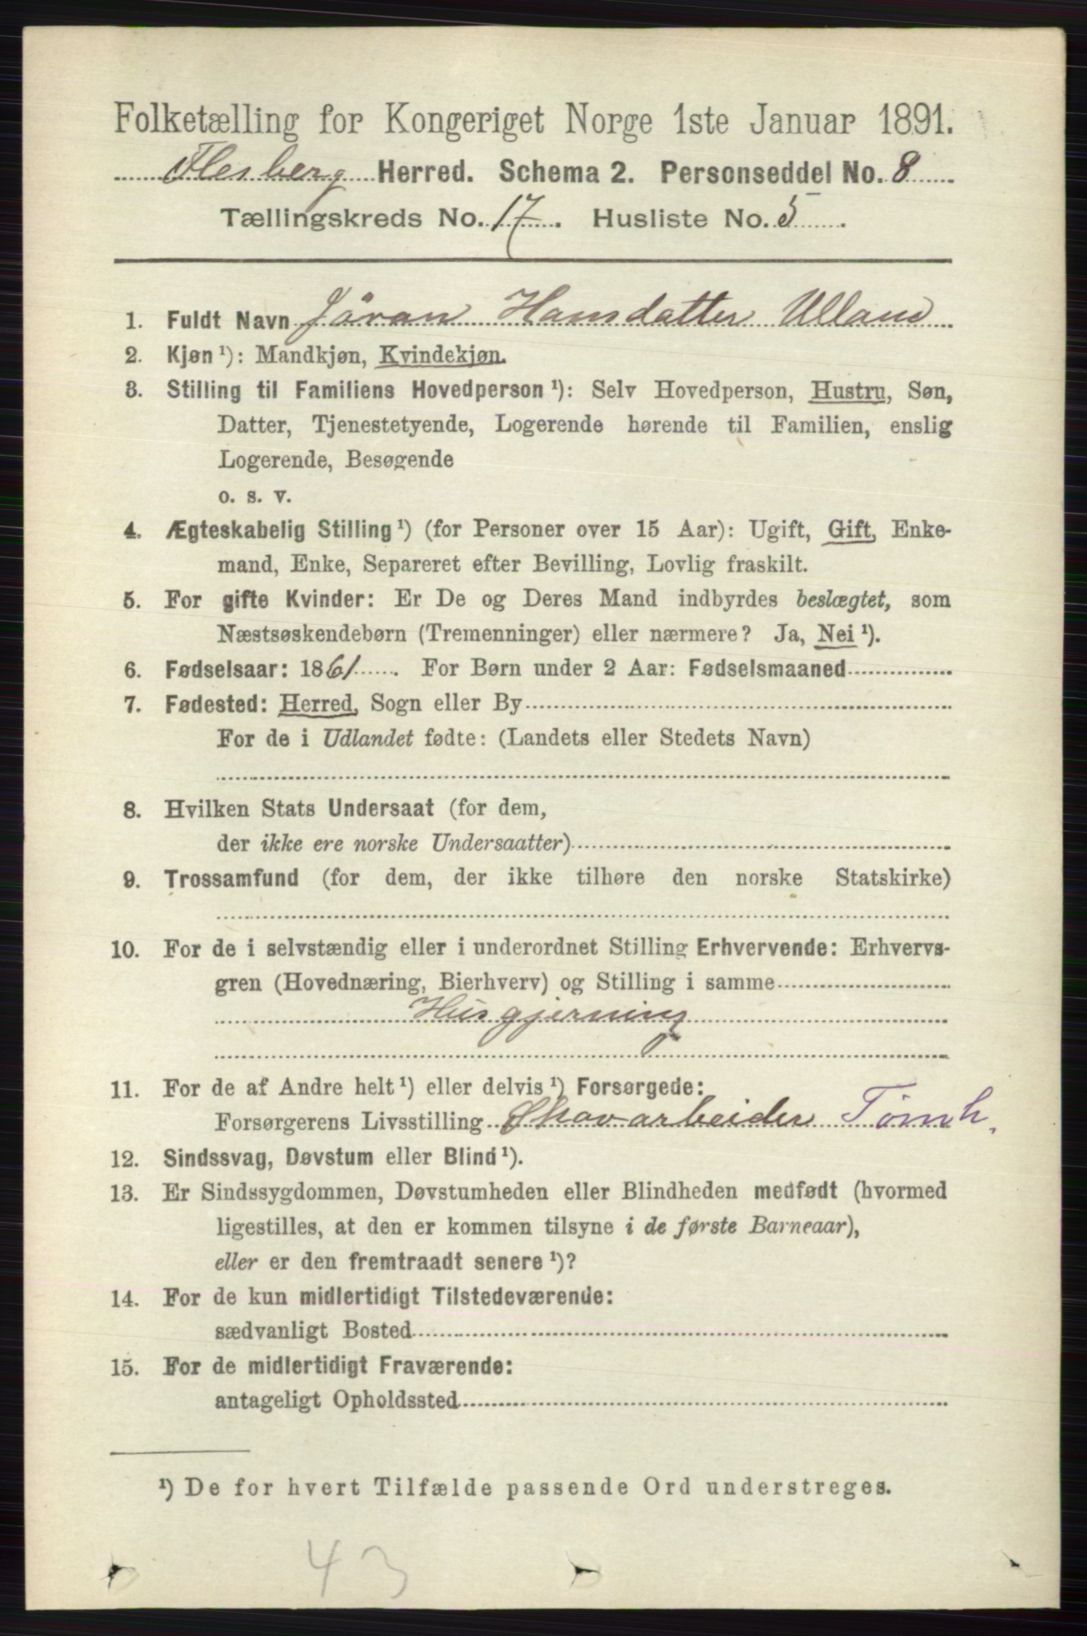 Folketælling for Kongeriget Norge 1ste Januar 1891.
Flesberg Herred. Schema 2. Personseddel No. 8
Tællingskreds No. 17. Husliste No. 5.
1. Fuldt Navn Jöran Hansdatter Ulland
2. Kjøn ¹): Mandkjøn, Kvindekjøn.
3. Stilling til Familiens Hovedperson ¹): Selv Hovedperson, Hustru, Søn,
Datter, Tjenestetyende, Logerende hørende til Familien, enslig
Logerende, Besøgende
o. s. v.
4. Ægteskabelig Stilling ¹) (for Personer over 15 Aar): Ugift, Gift, Enke-
mand, Enke, Separeret efter Bevilling, Lovlig fraskilt.
5. For gifte Kvinder: Er De og Deres Mand indbyrdes beslægtet, som
Næstsøskendebørn (Tremenninger) eller nærmere? Ja, Nei ¹).
6. Fødselsaar: 1861. For Børn under 2 Aar: Fødselsmaaned
7. Fødested: Herred, Sogn eller By
For de i Udlandet fødte: (Landets eller Stedets Navn)
8. Hvilken Stats Undersaat (for dem,
der ikke ere norske Undersaatter)
9. Trossamfund (for dem, der ikke tilhøre den norske Statskirke)
10. For de i selvstændig eller i underordnet Stilling Erhvervende: Erhvervs-
gren (Hovednæring, Bierhverv) og Stilling i samme
Husgjerning
11. For de af Andre helt ¹) eller delvis ¹) Forsørgede:
Forsørgerens Livsstilling Skovarbeider Tømh.
12. Sindssvag, Døvstum eller Blind ¹).
13. Er Sindssygdommen, Døvstumheden eller Blindheden medfødt (hvormed
ligestilles, at den er kommen tilsyne i de første Barneaar),
eller er den fremtraadt senere ¹)?
14. For de kun midlertidigt Tilstedeværende:
sædvanligt Bosted
15. For de midlertidigt Fraværende:
antageligt Opholdssted
¹) De for hvert Tilfælde passende Ord understreges.
43